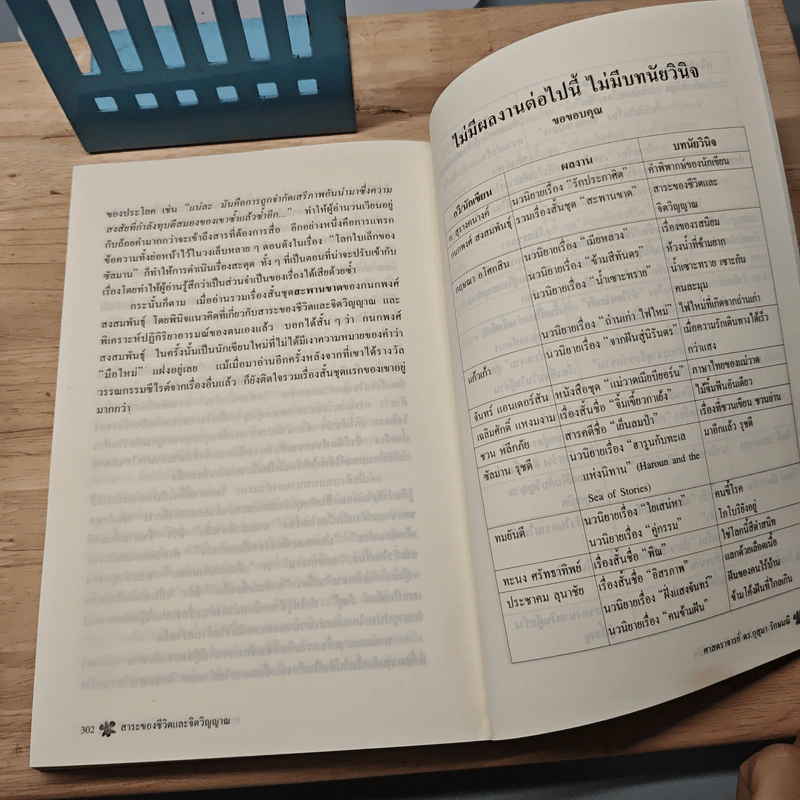 ของประโยค เช่น "แน่ละ มันคือการถูกจำกัดเสรีภาพอันนำมาซึ่งความ
สงสัยที่กำลังทุบตีสมองของเขาซ้ำแล้วซ้ำอีก..." ทำให้ผู้อ่านวนเวียนอยู่
กับถ้อยคำมากกว่าจะเข้าถึงสารที่ต้องการสื่อ อีกอย่างหนึ่งคือการแทรก
ข้อความทั้งย่อหน้าไว้ในวงเล็บหลาย ๆ ตอนดังในเรื่อง "โลกใบเล็กของ
ซัลมาน" ก็ทำให้การดำเนินเรื่องสะดุด ทั้ง ๆ ที่เป็นตอนที่น่าจะปรับเข้ากับ
เรื่องโดยทำให้ผู้อ่านรู้สึกว่าเป็นส่วนจำเป็นของเรื่องได้เสียด้วยซ้ำ
กระนั้นก็ตาม เมื่ออ่านรวมเรื่องสั้นชุดสะพานขาดของกนกพงศ์
สงสมพันธุ์ โดยพินิจแนวคิดที่เกี่ยวกับสาระของชีวิตและจิตวิญญาณ และ
พิเคราะห์ปฏิกิริยาอารมณ์ของตนเองแล้ว บอกได้สั้น ๆ ว่า กนกพงศ์
สงสมพันธุ์ ในครั้งนั้นเป็นนักเขียนใหม่ที่ไม่ได้มีเงาความหมายของคำว่า
"มือใหม่" แฝงอยู่เลย แม้เมื่อมาอ่านอีกครั้งหลังจากที่เขาได้รางวัล
วรรณกรรมซีไรต์จากเรื่องอื่นแล้ว ก็ยังติดใจรวมเรื่องสั้นชุดแรกของเขาอยู่
มากกว่า
302 สาระของชีวิตและจิตวิญญาณ
ไม่มีผลงานต่อไปนี้ ไม่มีบทนัยวินิจ
ขอขอบคุณ
กวี/นักเขียน ผลงาน บทนัยวินิจ
ก. สุรางคนางค์ นวนิยายเรื่อง "รักประกาศิต" คำพิพากษ์ของนักเขียน
กนกพงศ์ สงสมพันธุ์ รวมเรื่องสั้นชุด "สะพานขาด" สาระของชีวิตและ
จิตวิญญาณ
กฤษณา อโศกสิน นวนิยายเรื่อง "เมียหลวง" เรื่องของรสนิยม
นวนิยายเรื่อง "ข้ามสีทันดร" ห้วงน้ำที่ข้ามยาก
นวนิยายเรื่อง "น้ำเซาะทราย" น้ำเซาะทราย เซาะกัน
คนละมุม
แก้วเก้า นวนิยายเรื่อง "ถ่านเก่า ไฟใหม่" ไฟใหม่ที่เกิดจากถ่านเก่า
นวนิยายเรื่อง "จากฝันสู่นิรันดร" เมื่อความรักเดินทางได้เร็ว
กว่าแสง
จันทร์ แอนเดอร์สัน หนังสือชุด "แม่วาดเมียบียอร์น" ภาษาไทยของแม่วาด
เฉลิมศักดิ์ แหงมงาม เรื่องสั้นชื่อ "จิ้มเขี้ยวกาเย้ง" ไม่จิ้มฟันอันเดียว
ชวน หลีกภัย สารคดีชื่อ "เย็นลมป่า" เรื่องที่ชวนเขียน ชวนอ่าน
ซัลมาน รุชดี นวนิยายเรื่อง "ฮารูนกับทะเล มาอีกแล้ว รุชดี
แห่งนิทาน" (Haroun and the
Sea of Stories)
ทมยันตี นวนิยายเรื่อง "ใยเสน่หา" คนขี้โรค
นวนิยายเรื่อง "คู่กรรม" โกโบริยังอยู่
ทะนง ศรัทธาทิพย์ เรื่องสั้นชื่อ "พิณ" ใช่โลกนี้สีดำสนิท
ประชาคม ลุนาชัย เรื่องสั้นชื่อ "อิสรภาพ" แลกด้วยเลือดเนื้อ
นวนิยายเรื่อง "ฝั่งแสงจันทร์" ฝันของคนไร้บ้าน
นวนิยายเรื่อง "คนข้ามฝัน" ข้ามโค้งฝันที่ไกลเกิน
ศาสตราจารย์ ดร.กุสุมา รักษมณี